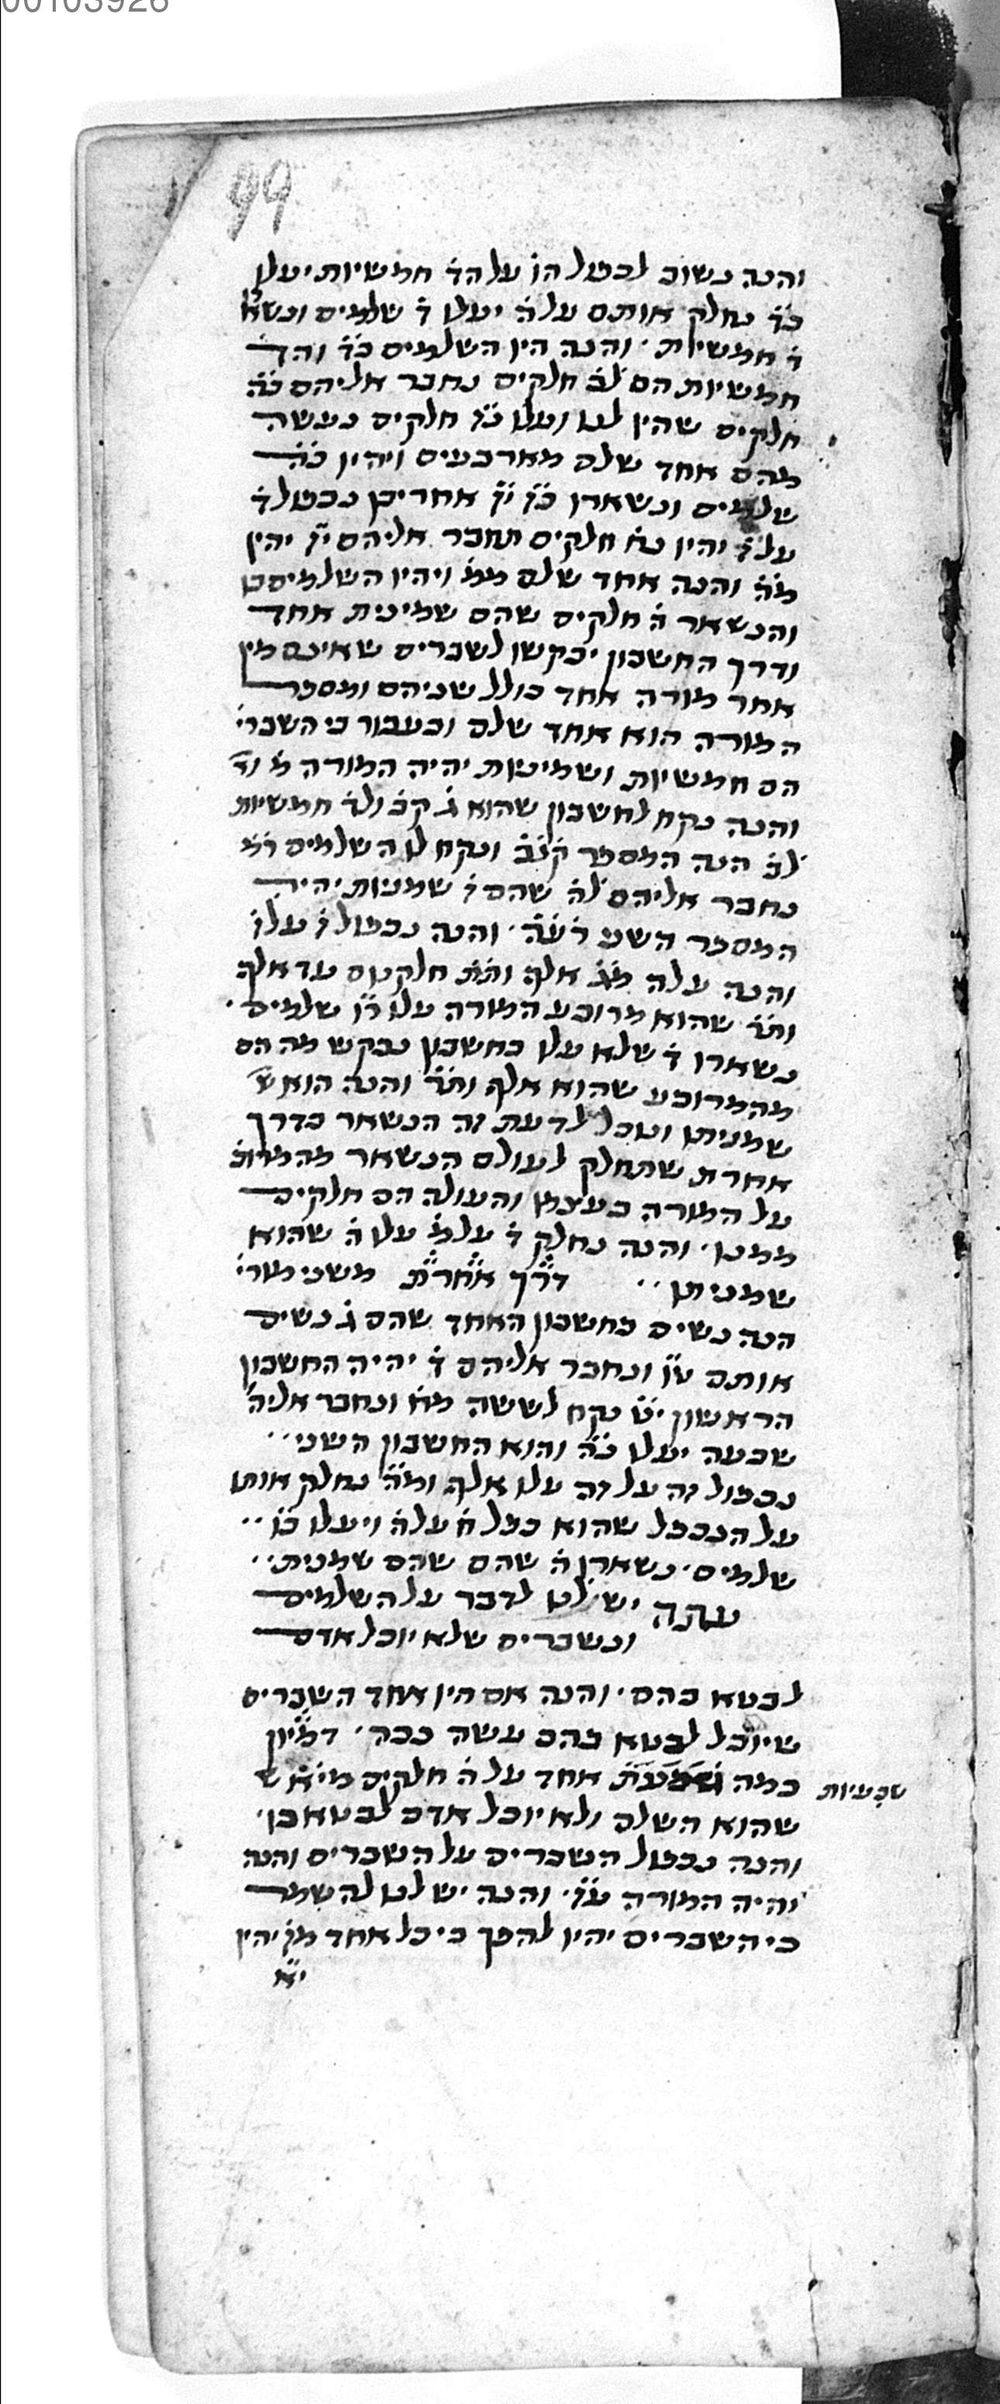 00103926
99
והנה נשוב לכפול הו על הד חמשיות יעלו
כד נחלק אותם על ה יעלו ד שלמים ונשאר
ד חמשיות והנה היו השלמים כד והד
חמשיות הם לב חלקים נחבר אליהם כה
חלקים שהיו לנו ועלו נז חלקים נעשה
מהם אחד שלם מארבעים ויהיו כה
שלמים ונשארו יז אחרי כן נכפול ד
על ז והיו כח חלקים תחבר אליהם יז יהיו
מה והנה אחד שלם ממ ויהיו השלמים כו
והנשאר ה חלקים שהם שמינית אחד
ודרך החשבון יבקשו לשברים שאינם מין
אחד מורה אחד כולל שניהם ומספר
המורה הוא אחד שלם ובעבור כי השברי
הם חמשיות ושמיניות יהיה המורה מ וד
והנה נקח לחשבון שהוא ג קכ ולד חמשיות
לב הנה המספר קנב ונקח לו השלמים רמ
נחבר אליהם לה שהם ז שמניות יהיה
המספר השני רעה והנה נכפול ז על ז
והנה עלה מא אלף ותת חלקנום עד אלף
ותר שהוא מרובע המורה עלו כו שלמים
נשארו ד שלא עלו בחשבון נבקש מה הם
מהמרובע שהוא אלף ותר והנה הוא
שמניתו ונוכל לדעת זה הנשאר בדרך
אחרת שתחלק לעולם הנשאר מהמרוב
על המורה בעצמו והעולה הם חלקים
ממנו והנה נחלק ד על מ עלו ה שהוא
שמניתו דרך אחרת משני מורי
הנה נשים בחשבון האחד שהם ג נשים
אותם טו ונחבר אליהם ד יהיה החשבון
הראשון יט נקח לששה מח ונחבר אליה
שבעה יעלו נה והוא החשבון השני
נכפול זה על זה עלו אלף ומה נחלק אותו
על הנכפל שהוא כפל ח על ה ויעלו כו
שלמים נשארו ה שהם שהם שמנית
עתה יש לנו לדבר על השלמים
ונשברים שלא יוכל אדם
לבטא בהם והנה אם היו אחד השברים
שיוכל לבטא בהם עשה ככה דמיון
כמה אחד על ה חלקים מיא
שבעיות
שהוא השלם ולא יוכל אדם לבטא בו
והנה נכפול השברים על השברים והנה
יהיה המורה עז והנה יש לנו לה שמר
כי השברים יהיו להפך כי כל אחד מז יהיו
יא